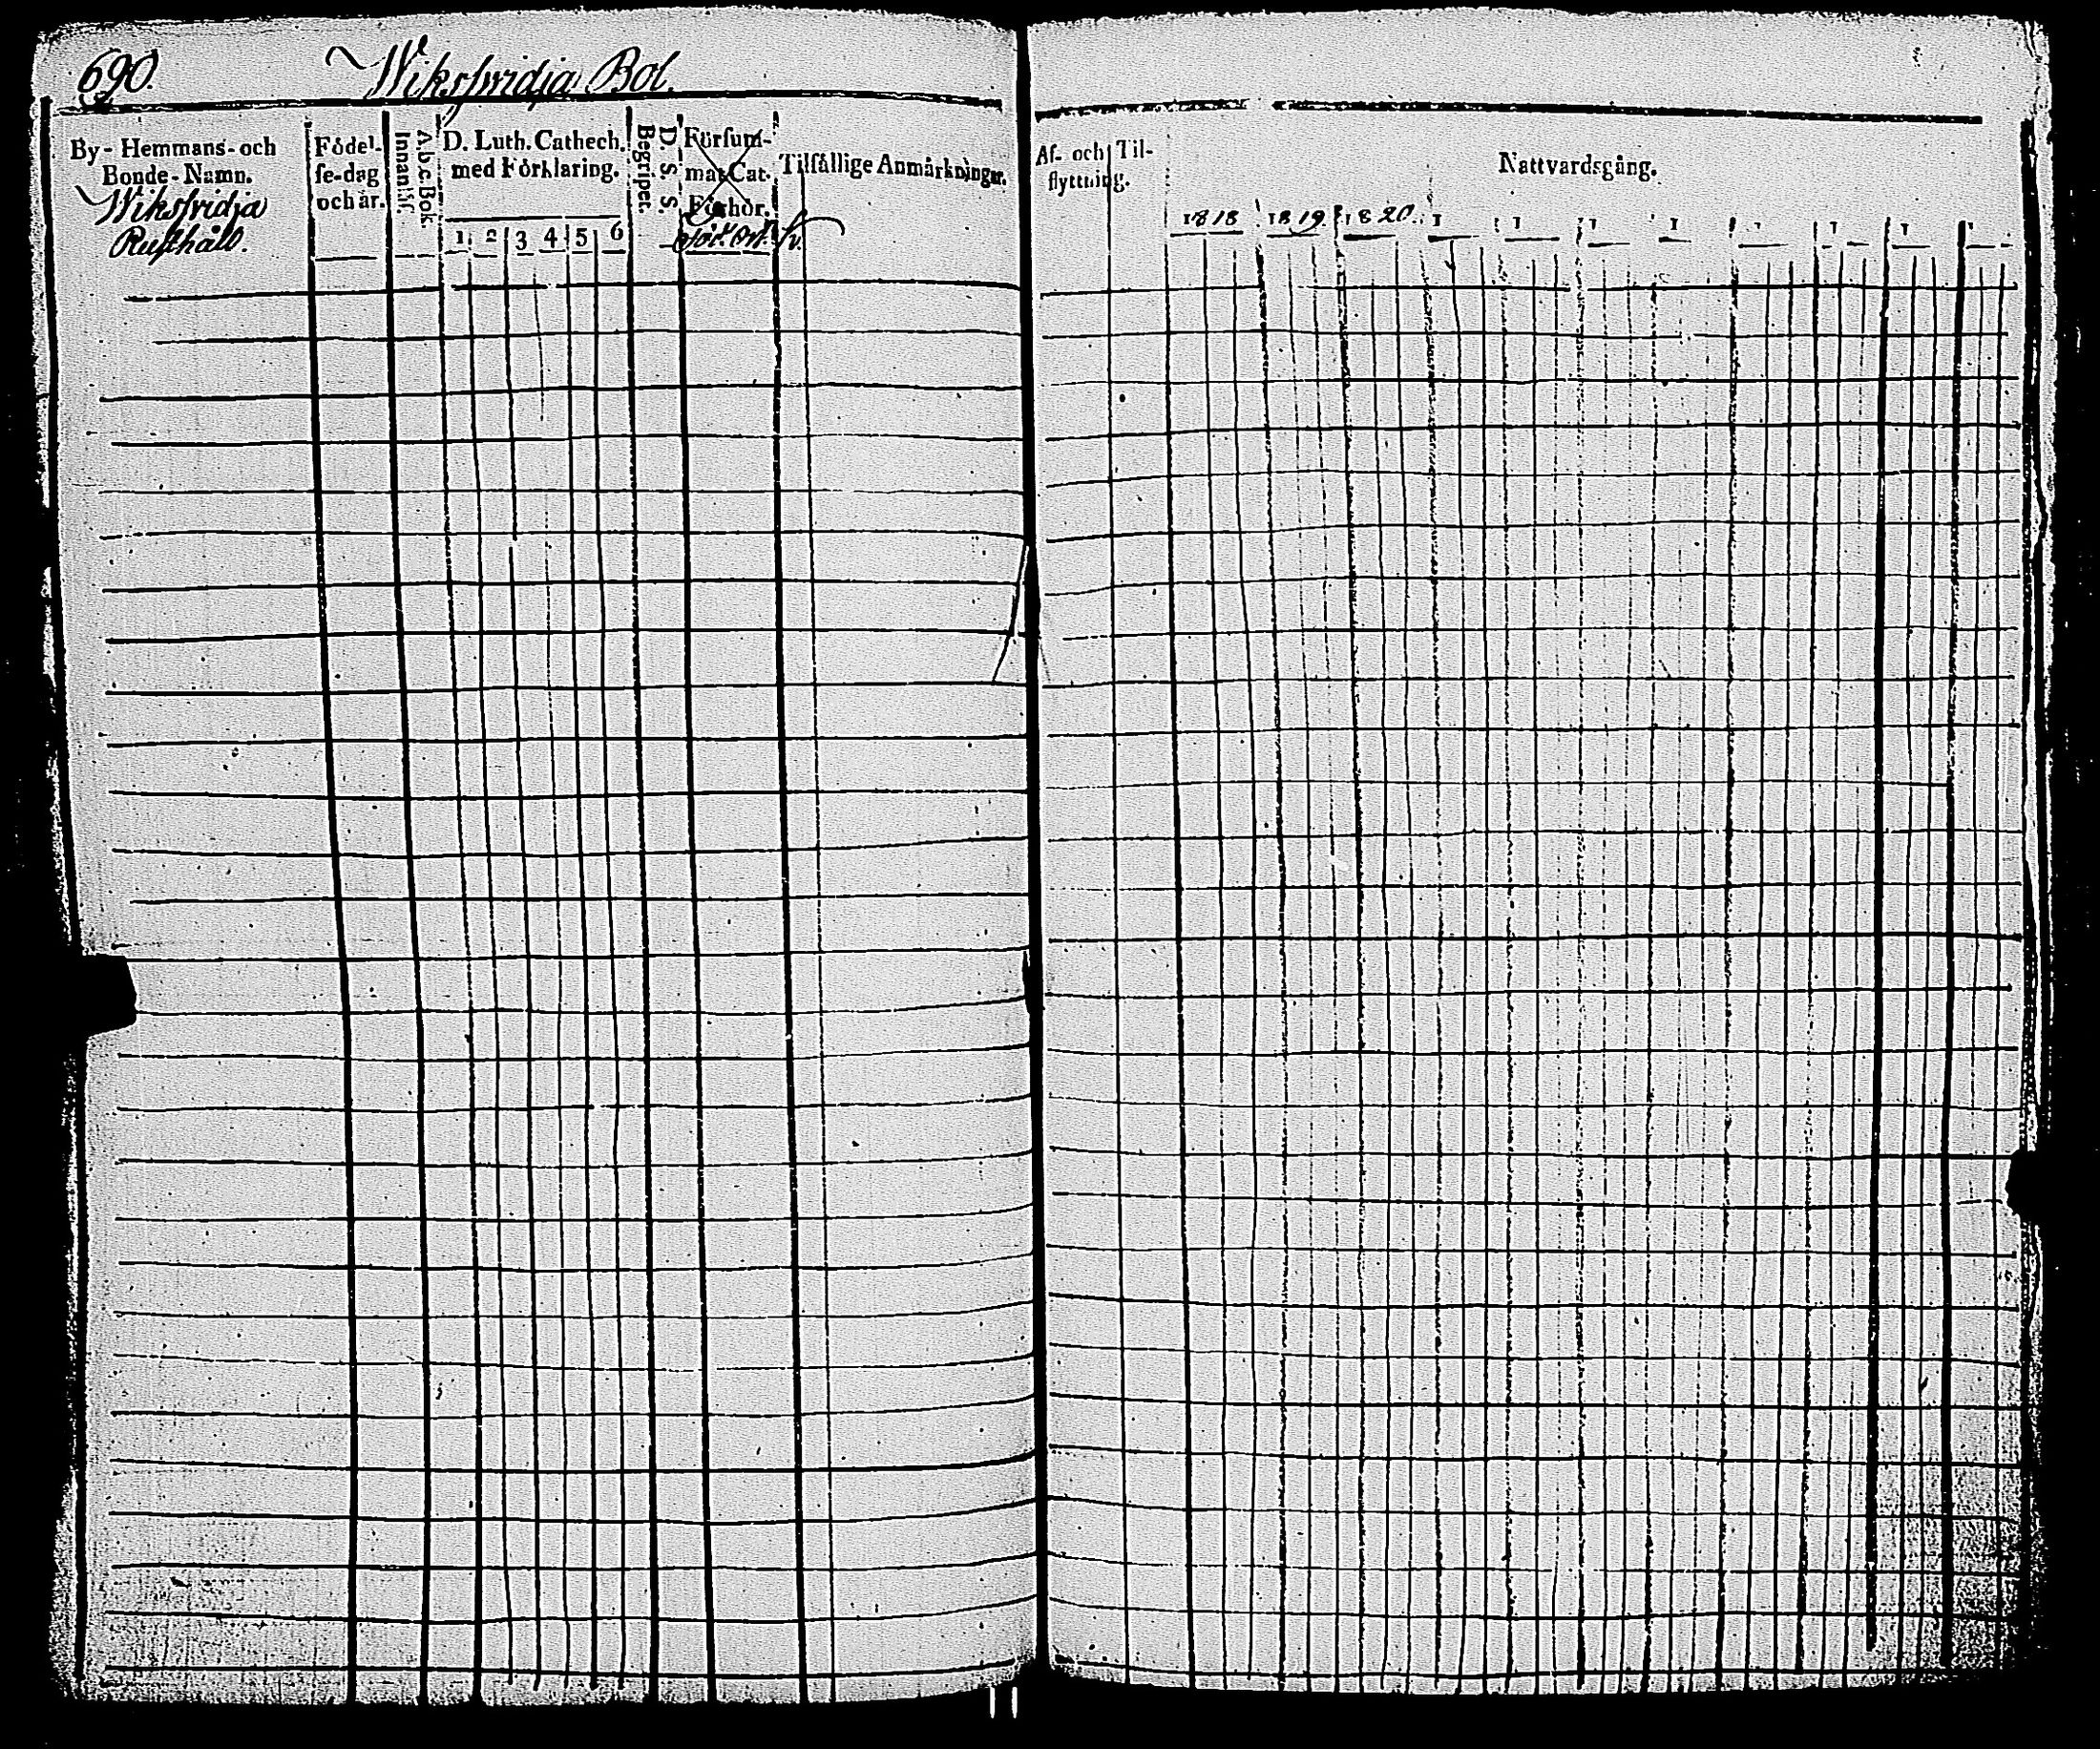 690. Wiksfvidja Bol.
By- Hemmans- och
Bonde-Namn.
Wiksfvidja
Rusthåll.
Födel-
se-dag
och år.
Innanläs.
A.b.c.Bok.
D. Luth. Cathech.
med Förklaring.
1 2 3 4 5 6
Begriper.
D. S. S.
Försum-
mat Cat-
Förhör.
Tilfällige Anmärkningar.
Af- och Til-
flyttning.
Nattvardsgång.
1818 1819. 1820. 1 1 1 1 1 1 1 1